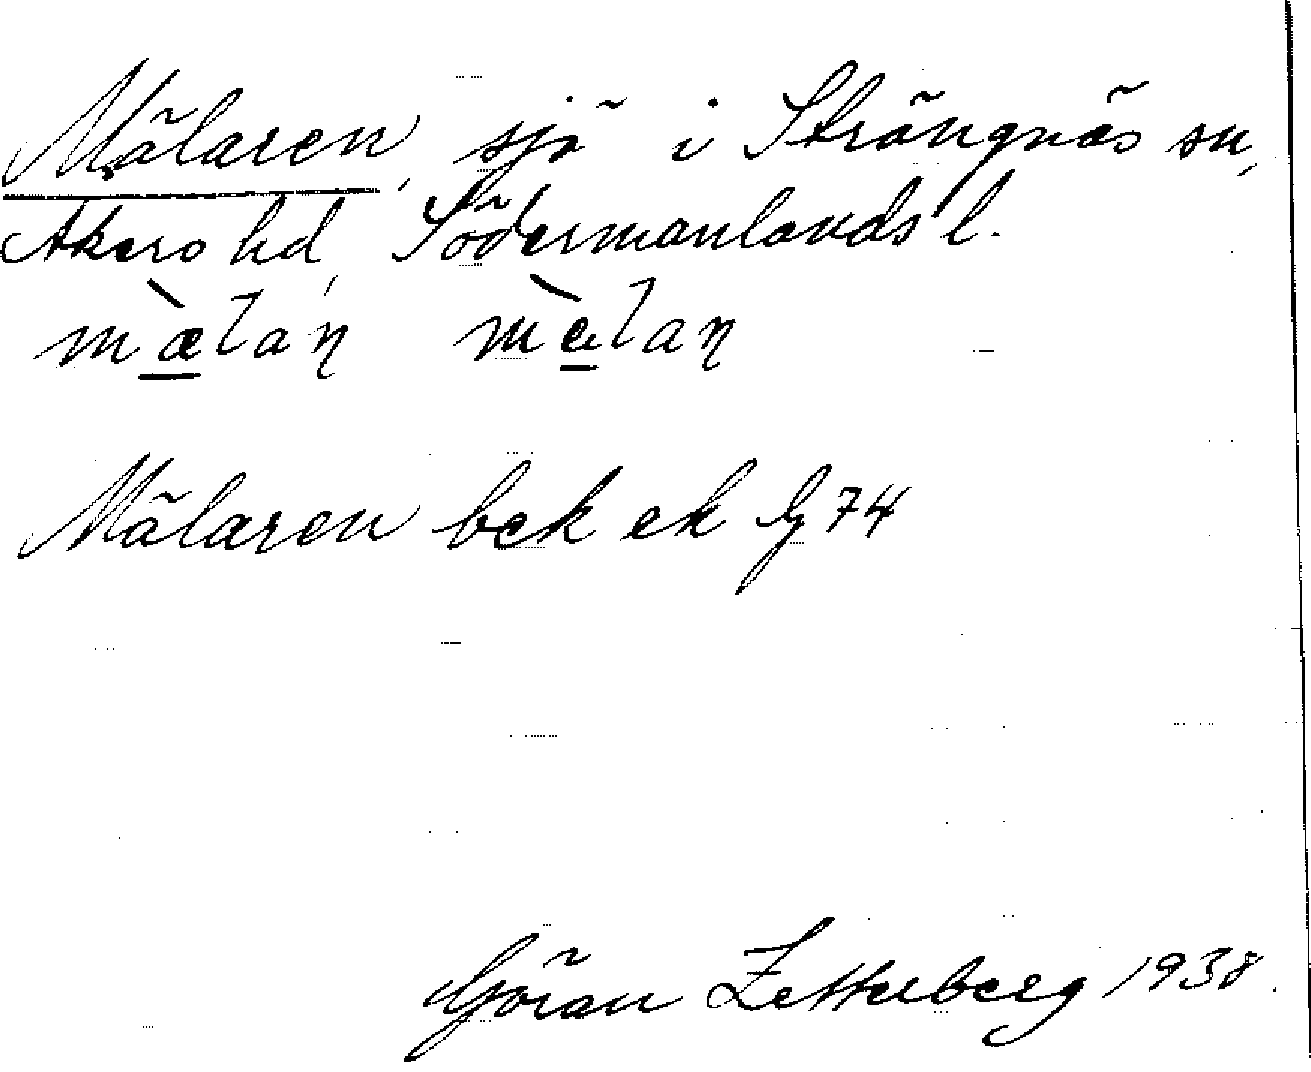 Mälaren, sjö i Strängnäs sn,
Åkers hd, Södermanlands l.
mæ̀lan mèlan
Mälaren bek ek G 74
Göran Zetterberg 1938.